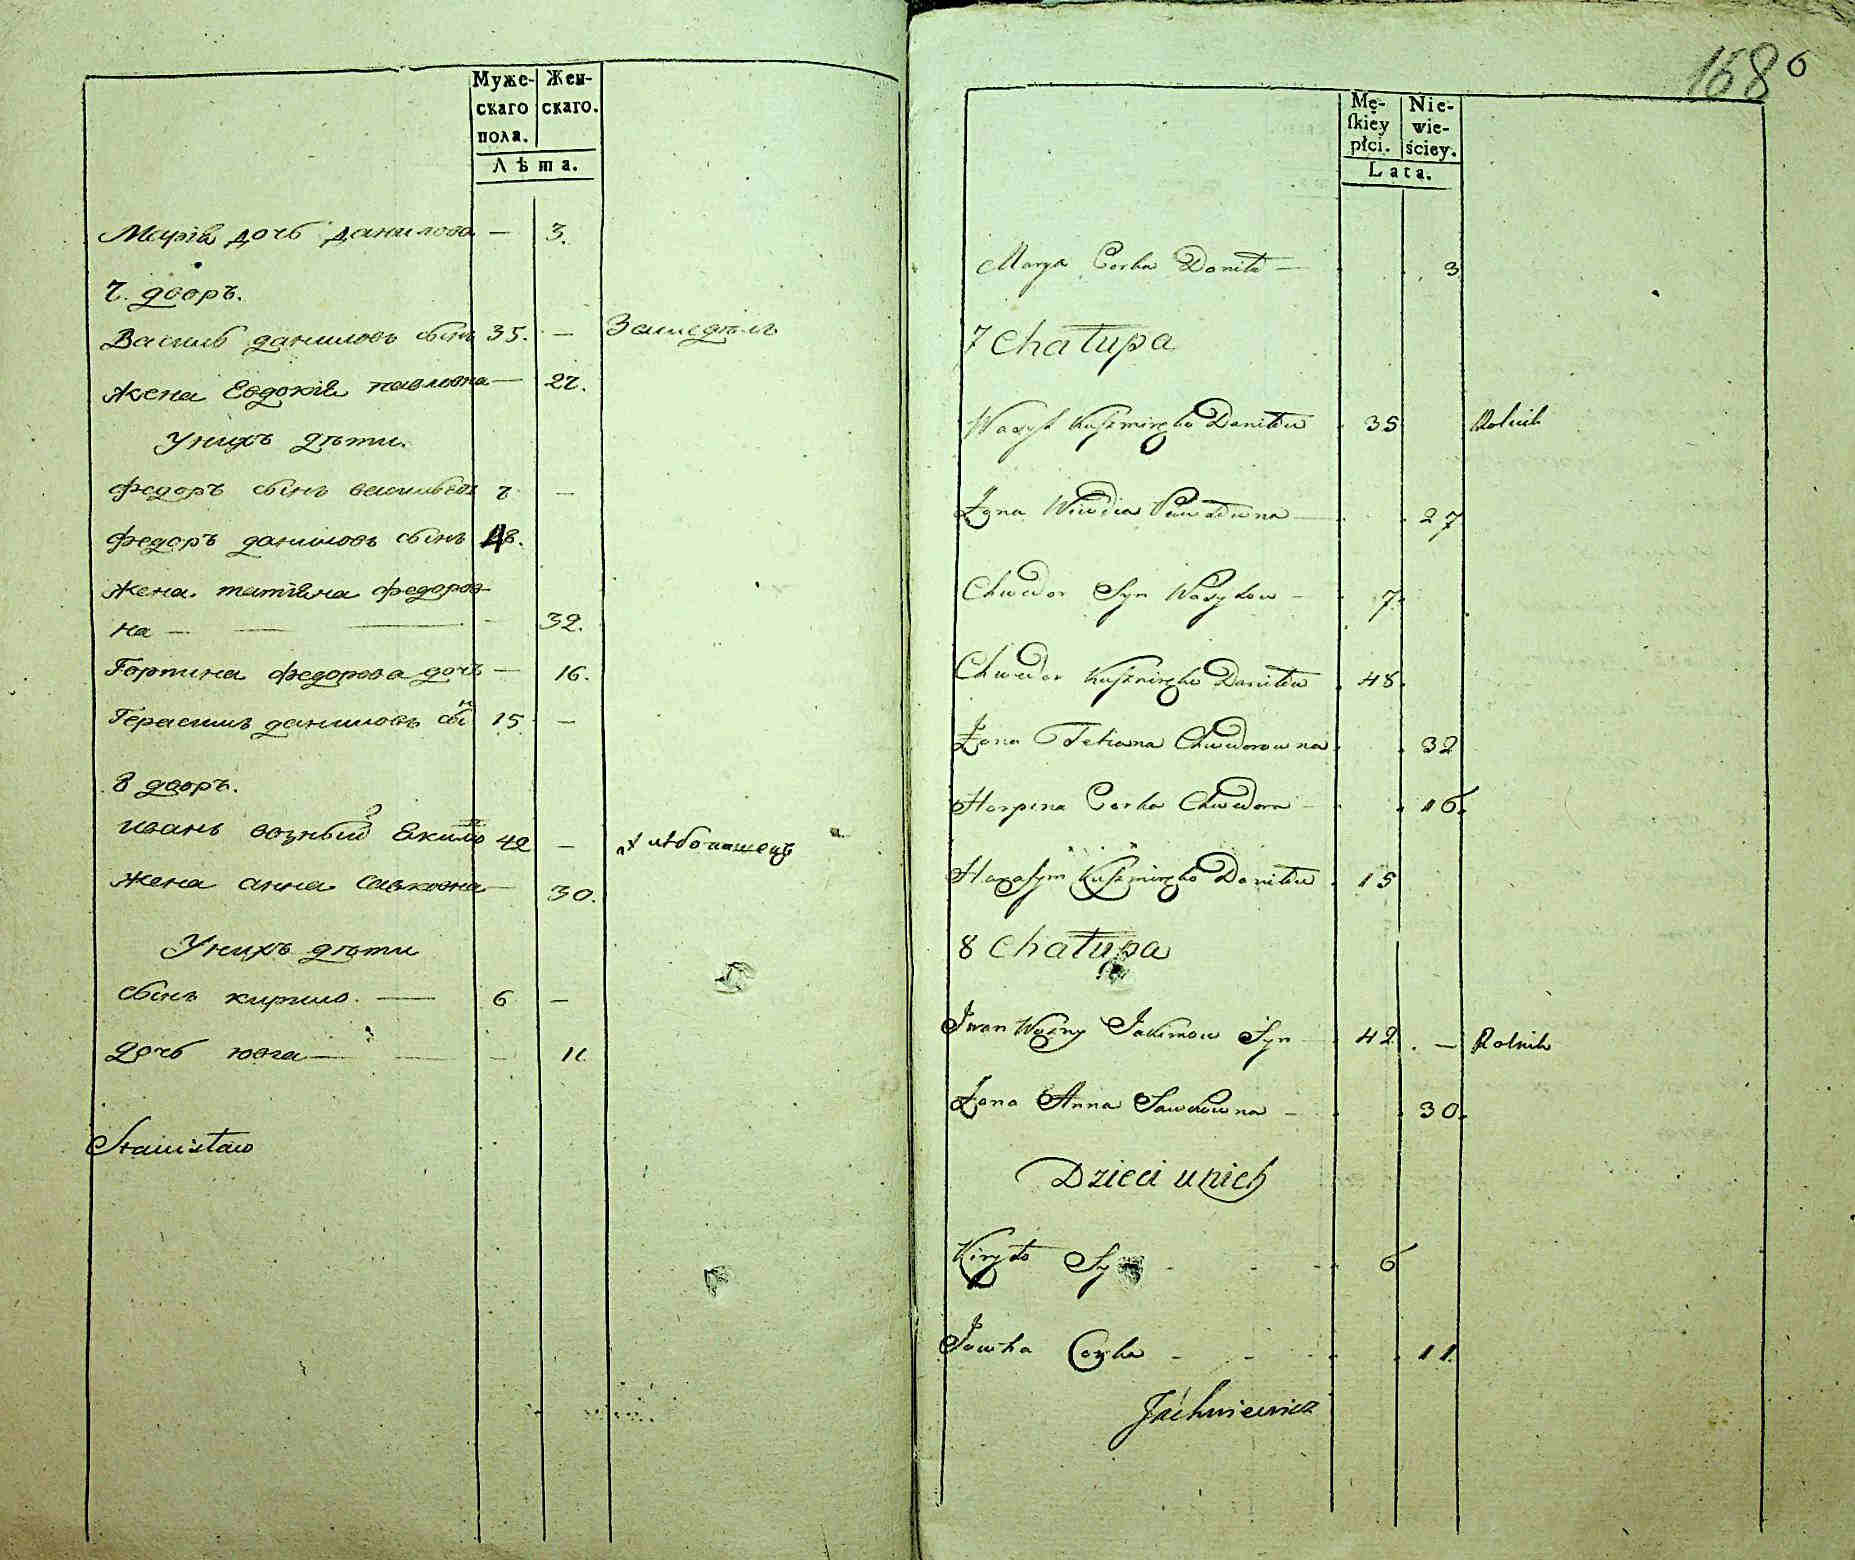 Муже-
скаго
пола.
Жен-
скаго.
Лѣта.
Марія дочь данилова — 3.
7. дворъ.
Василь даниловъ сынъ 35. —
жена Евдокія павловна — 27.
Унихъ дѣти.
федоръ сынъ васильевъ 7 —
федоръ даниловъ сынъ 48.
жена. татіяна федоров
на — 32.
Горпина федорова дочъ — 16.
Герасимъ даниловъ сынъ 15. —
8 дворъ.
иванъ возный Екимов 42 — хлѣбопашецъ
жена анна савковна — 30.
Унихъ дѣти
сынъ кирило. — 6 —
дочь ювга — — 11.
Stanisław
168 б
Mę-
ſkiey
płci.
Nie-
wie-
ściey.
Lata.
Marya Corka Daniła — 3
7 Chałupa
Wasyl Danilow 35 Rolnik
Żona Wiwdia Pawłowna — 27
Chwedor Syn Wasylow — 7.
Chwedor Danilow 48.
Żona Tetiana Chwedorowna 32
Horpina Corka Chwedora — 16.
Harasym Danilow 15
8 Chałupa
Jwan Wozny Jakimow Syn 42 . — Rolnik
Żona Anna Sawkowna — 30.
Dzieci unich
Kiryło Syn 6
Jowha Corka 11.
Jachniewicz